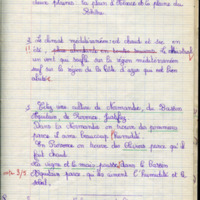 deux plaines: la plaine d'Alsace et la plaine du
Rhône
2. Le climat méditerranéen est chaud et sec en
été,
un vent qui souffle sur la région méditerranéen
sur la région de la
3. Citez une culture de Normandie, du Bassin
Aquitain, de Provence. Justifiez
Dans la Normandie on trouve des pommiers
parce il aime beaucoup l'humidité.
En Provence on trouve des Oliviers parce qu'il
fait chaud.
La vigne et le maïs poussent dans le Bassin
Aquitain parce qu'ils aiment l'humidité et le
soleil.